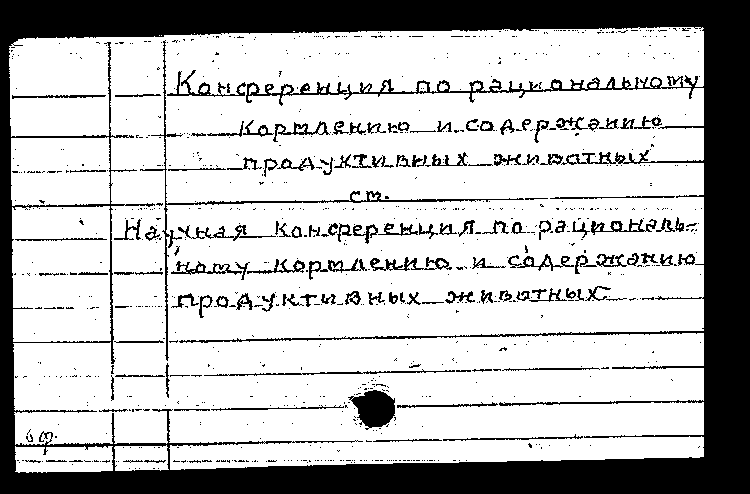 Конференция по рациональному
кормлению и содержанию
продуктивных животных
ст.
Научная конференция по рациональ-
ному кормлению и содержанию
продуктивных животных